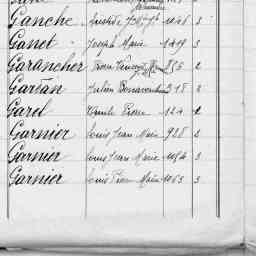 Ganche Aristide 1046 3
Ganet Joseph Marie 1419 3
Garancher Pierre 855 2
Garéan Julien Bonaventure 318 2
Garel Emile Pierre 124 2
Garnier Louis Jean Marie 928 2
Garnier Louis Jean Marie 1054 3
Garnier Louis Pierre Marie 1063 3